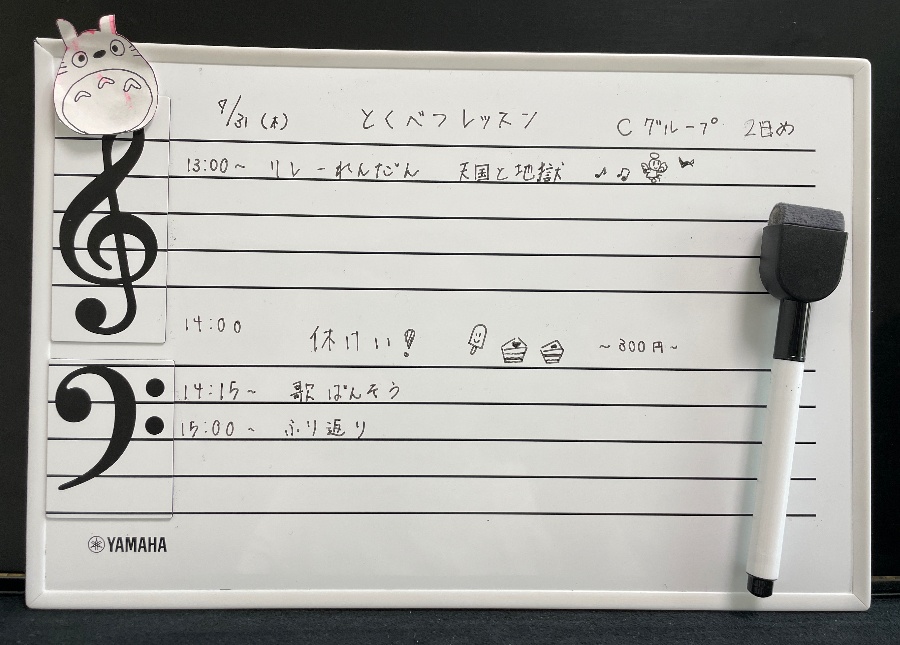 7/31(木) とくべつレッスン Cグループ 2日め
13:00～ リレーれんだん 天国と地獄
14:00 休けい! ～300円～
14:15～ 歌ばんそう
15:00～ ふり返り
YAMAHA